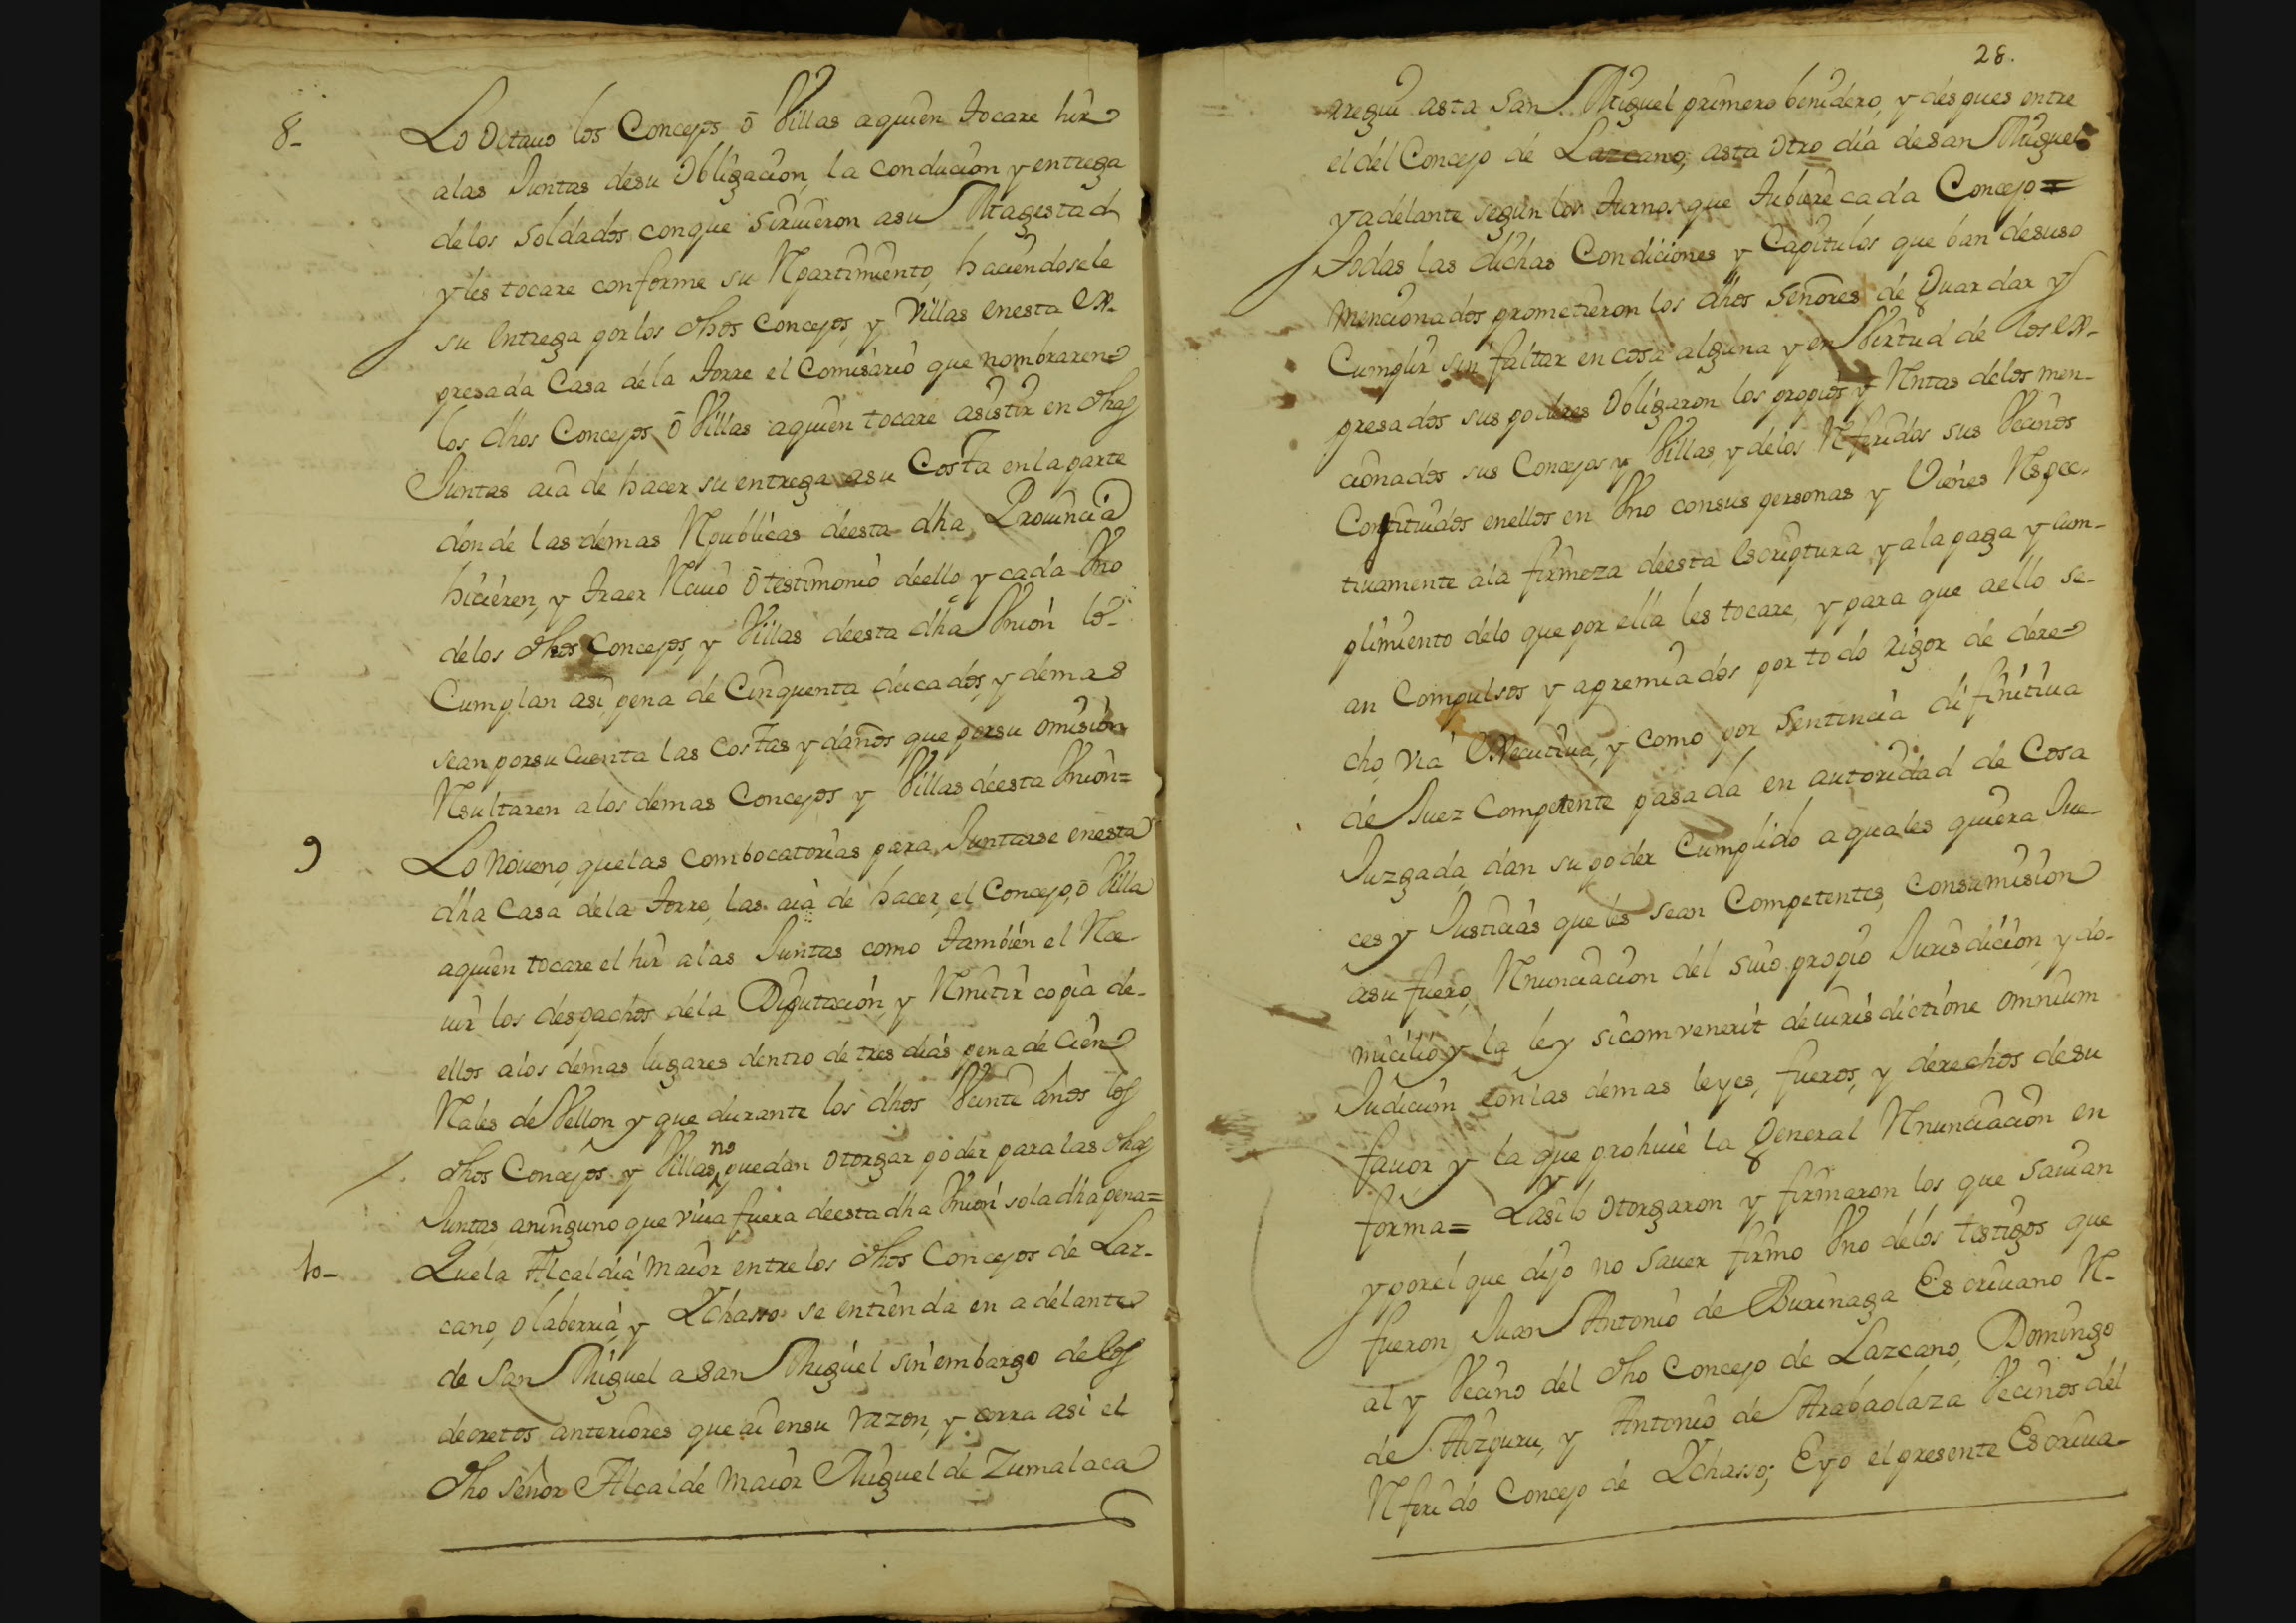 8_
Lo Octauo los Concejos ō Villas aquien tocare hir
alas Juntas desu Obligacion, la conducion y entrega
delos soldados conque siruieron asu Magestad
y les tocare conforme su Rpartimiento, haciendosele
su entrega por los dhos Concejos, y Villas enesta ex-
presada Casa dela Torre el Comisario que nombraren
los dhos Concejos ō Villas aquien tocare asistir en dhas
Juntas aia de hacer su entrega asu Costa enla parte
donde las demas Rpublicas deesta dha Prouincia
hicieren, y traer Rciuo ō testimonio deello, y cada Vno
delos dhos Concejos, y Villas deesta dha Vnion lo-
Cumplan asi, pena de Cinquenta ducados, y demas
sean porsu Cuenta las Costas y daños que porsu omision
Rsultaren alos demas Concejos y Villas deesta Vnion=
9
Lo Noueno, quelas combocatorias para Juntarse enesta
dha Casa dela Torre, las aia de hacer, el Concejo, ō Villa
aquien tocare el hir alas Juntas como tambien el Rce-
uir los despachos dela Diputacion, y Rmitir copia de-
ellos alos demas lugares dentro de tres dias pena de Cien
Rales de Vellon y que durante los dhos Veinte años los
dhos Concejos y Villas no puedan otorgar poder para las dhas
Juntas, aninguno que viua fuera deesta dha Vnion sola dha pena=
10_
Quela Alcaldia maior entre los dhos Concejos de Laz-
cano, Olaberria, y Ychasso se entienda en adelante
de San Miguel a San Miguel sin embargo de los
decretos anteriores que ai ensu razon, y corra asi el
dho señor Alcalde maior Miguel de Zumalaca
28.
rregui asta San Miguel primero benidero, y despues entre
el del Concejo de Lazcano, asta otro dia de San Miguel
y adelante segun los turnos que tubiere cada Concejo=
Todas las dichas Condiciones y Capitulos que ban desuso
mencionados prometieron los dhos Señores de Guardar y
Cumplir sin faltar en cosa alguna y en Virtud de los ex-
presados sus poderes Obligaron los propios y Rntas delos men-
cionados sus Concejos y Villas, y delos Rferidos sus Vecinos
Constituidos enellos en Vno consus personas y Vienes Rspec-
tiuamente ala firmeza deesta Escriptura y ala paga y cum-
plimiento delo que por ella les tocare, y para que aello se-
an Compulsos y apremiados por todo rigor de dere-
cho, via Executiua, y como por Sentencia difinitiua
de Juez Competente pasada en autoridad de Cosa
Juzgada, dan su poder Cumplido a quales quiera Jue-
ces y Justicias que les sean Competentes, consumision
asu fuero, Rnunciacion del suio propio Jurisdicion, y do-
micilio, y la ley sicomvenerit de iurisdictione omnium
Judicum con las demas leyes, fueros, y derechos desu
fauor y la que prohiue la General Rnunciacion en
forma= Yasilo otorgaron y firmaron los que sauian
y por el que dijo no sauer firmo Vno delos testigos que
fueron Juan Antonio de Burinaga Escriuano R-
al y Vecino del dho Concejo de Lazcano, Domingo
de Auzguru, y Antonio de Arabaolaza Vecinos del
Rferido Concejo de Ychasso; Eyo el presente Escriua-